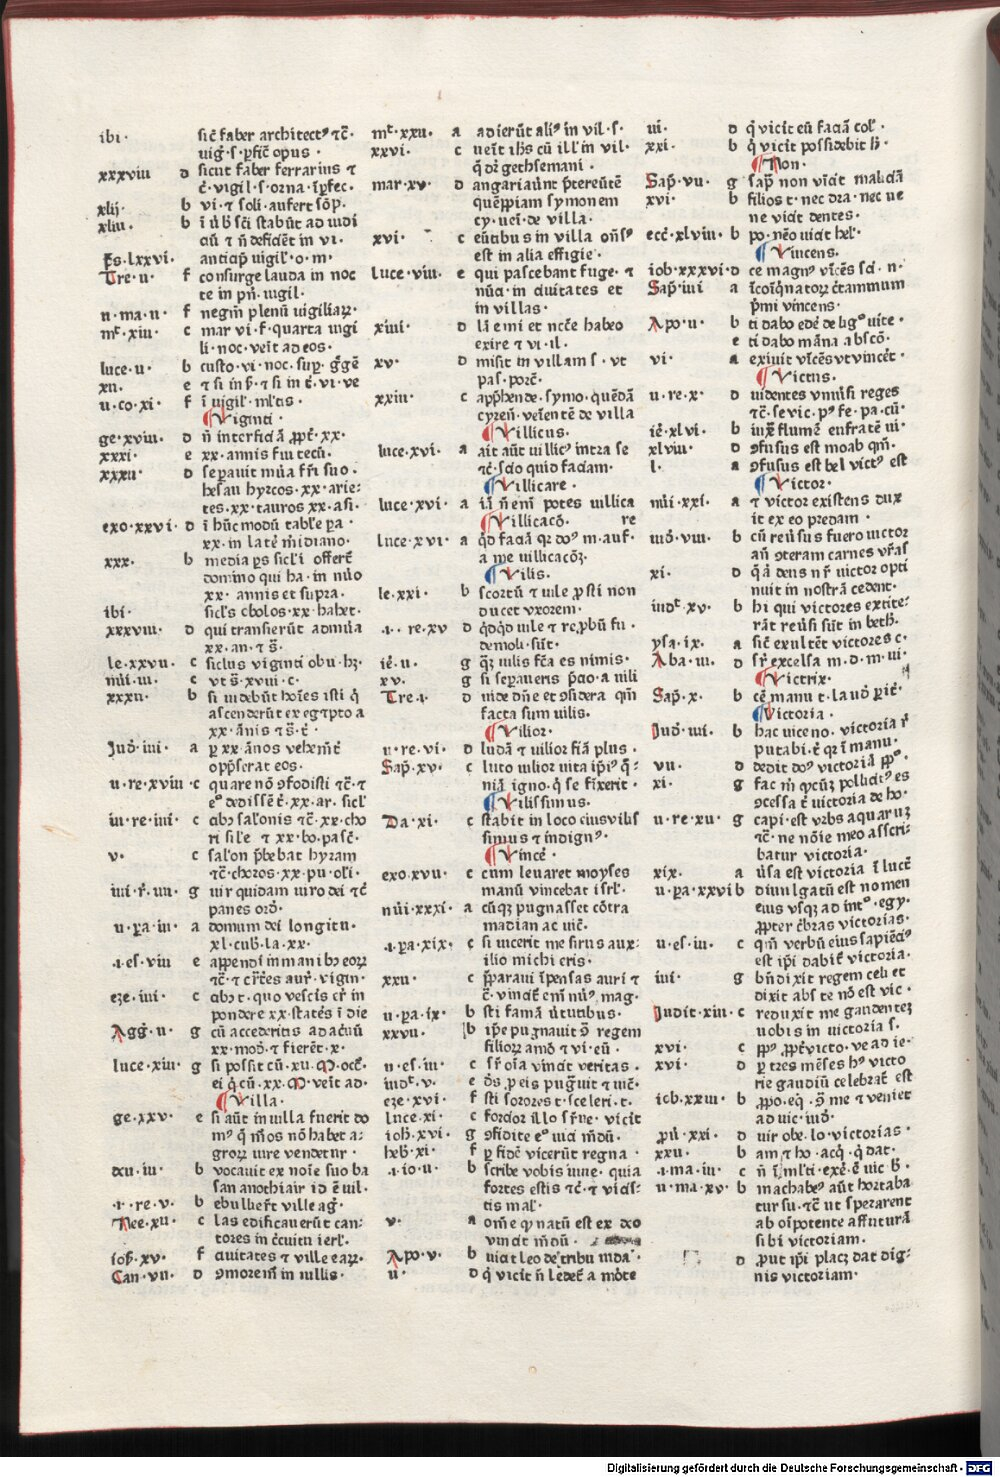 ibi· sic̄ faber architectꝰ ⁊c̄·
uig̕·s·ꝑfic̄ opus·
xxxviii d sicut faber ferrarius ⁊
c̄·vigil·s·orna·īꝑfec·
xlij· b vi·⁊ soli·aufert sōp·
xliii· b ī ūb̄ sc̄i stabūt ad iudi
aū ⁊ n̄ deficiēt in vi·
ps·lxxvi· antiap̄ uigil̕·o·m·
Tre·ii· f consurge lauda in noc
te in pn̄·uigil·
n·ma·ii· f negm̄ plenū uigiliaꝝ·
mt̄·xiii· c mar vi·f·quarta uigi
li·noc·veīt ad eos·
luce·ii· b custo·vi·noc·suꝑ·ḡgē
xii· e ⁊ si in ẜ·⁊ si in t̄·vi·ve
ii·co·xi· f ī uigil̕·ml̕tis·
Viginti·
ge·xviii· d n̄ interficiā ꝓpt̄·xx·
xxxi· e xx·annis fui tecū·
xxxii· d seꝑauit mūa fr̄i suo·
hesau hyrcos·xx·arie-
tes·xx·tauros xx·asi·
exo·xxvi· d ī hūc modū tabl̕e ꝑa·
xx·in lat̄e m̄idiano·
xxx· b media ꝑs sicl̕i offert̄
domino qui ha·in nūo
xx·annis et supra·
ibi· sicl̕s obolos·xx·habet·
xxxviii· d qui transierūt ad mūa
xx·an·⁊ s̄·
le·xxvii· c siclus viginti obu·hꝫ·
nūi·iii· c vt s̄·xviii·c·
xxxii· b si uidebūt hoīes isti q̄
ascenderūt ex egypto a
xx·ānis ⁊ s̄·t̄·
Jud̄·iiii· a ꝑ xx·ānos vehem̄t̄
opp̄serat eos·
ii·re·xviii·c quare nō ꝯfodisti ⁊c̄·⁊
eꝰ dedissē t̄·xx·ar·sicl̕
iii·re·iiii· c abꝫ salōnis ⁊c̄·xx·cho
ri sil̕e ⁊ xx·bo·pasc̄·
v· c salōn p̄bebat hyram
⁊c̄·choros·xx·pu·ol̕i·
iiii·r̄·iiii· g uir quidam uiro dei ⁊c̄
panes ord̄·
ii·ꝑa·iii· a domum dei longitu·
xl·cub̄·la·xx·
·i·es·viii e appendi in manibꝫ eoꝝ
⁊c̄·⁊ cr̄t̄es aur̄·vigin·
eze·iiii· c abꝫ t·quo vescis er̄ in
pondere xx·statēs ī die
Agḡ·ii· g cū accederitis ad ac̄uū
xx·mod̄·⁊ fierēt·x·
luce·xiii· g si possit cū·xii·M·occ̄·
ei q̄ cū·xx·M·veīt ad·
Villa·
ge·xxv· e si aūt in uilla fuerit do
mꝰ q̄ m̄os nō habet a:
groꝝ iure vendetur·
dxu·iii· b vocauit ex noīe suo ba
san anothiair id ē uil·
·i·re·v· b ebulher̄t ville ag̕·
Nee·xii· c las edificauerūt can:
tores in c̄cuitu ierl̄·
ioh̄·xv· f ciuitates ⁊ ville eaꝝ·
Can·vii· d ꝯmorem̄ in uillis·
mt̄·xxii· a adierūt aliꝰ in vil·s·
xxvi· c ueīt ihs cū ill̕ in vil·
q̄ dr̄ gethsemani·
mar·xv· d angariaūnt p̄tereūtē
quēpiam symonem
cy·uei̕·de villa·
xvi· c eūtibus in villa on̄sꝰ
est in alia effigie·
luce·viii· e qui pascebant fuge·⁊
nūa·in ciuitates et
in villas·
xiiii· d l̄a emi et nc̄ce habeo
exire ⁊ vi·il·
xv· d misit in villam s·vt
pas·porc̄·
xxiii· c app̄hende·symo·quēdā
cyren̄·veīentē de villa
Villicus·
luce·xvi· a ait aūt uillicꝰ intra se
⁊c̄·scio quid faciam·
Villicare·
luce·xvi· a iā n̄ em̄ potes uillica
Villicacō· re
luce·xvi· a qd̄ faciā qꝛ doꝰ m·auf·
a me uillicacōꝫ·
Vilis·
le·xxi· b scortū ⁊ uile ꝓsti non
ducet vxorem·
·i·re·xv d q̄dqd̄ uile ⁊ reꝓbū fu·
demoli·sūt·
ie̕·ii· g q̄ꝫ uilis fc̄a es nimis·
xv· g si seꝑauens p̄cio a uili
Tre·i· d uide dn̄e et ꝯsidera qm̄
facta sum uilis·
Vilior·
ii·re·vi· d ludā ⁊ uilior fiā plus·
Sap̄·xv· c luto uilior uita ip̄iꝰ q̄·
niā igno·q̄ se fixerit·
Vilissimus·
Da·xi· c stabit in loco eius vilis
simus ⁊ indignꝰ·
Vince̕·
exo·xvii· c cum leuaret moyses
manū vincebat isrl̕·
nūi·xxxi· a cūqꝫ pugnasset cōtra
madian ac uic̄·
·i·ꝑa·xix· c si uicerit me sirus aux·
ilio michi eris·
xxii· c p̄paraui īpensas auri ⁊
c̄·vincit̄ em̄ nūꝰ, mag·
ii·ꝑa·ix· b sti famā ūtutibus·
xxvii· b ip̄e pugnauit ꝯ regem
filioꝝ amō ⁊ vi·eū·
ii·es·iii· c sr̄ oīa vincit veritas·
iudt̄·v· e ds̄ ꝑ eis pug̕uit ⁊ uic̄·
eze·xvi· f sti sorores t·sceleri·t·
luce·xi· c forcior illo s f̄ue·vicit
ioh̄·xvi· g ꝯfidite eꝰ uici mdū·
heb̄·xi· f ꝑ fidē vicerūt regna·
·i·io·ii· b scribe vobis iuue·quia
fortes estis ⁊c̄·⁊ vicis·
tis mal̕·
v· a om̄e qꝫ natū est ex deo
vincit mdū·
Apo·v· b uicit leo de tribu iuda·
ii· d q̄ vicit n̄ ledet̄ a morte
iii· d q̄ vicit eū faciā col̕·
xxi· b q̄ vicit possidebit h̄·
Non·
Sap̄·vii· g sap̄ non vīcit maliciā
xvi· b filios t·nec dra·nec ue
ne vicit dentes·
ecc̄·xlviii· b po·nēo uicit hel̕·
Vincens·
iob·xxxvi·d ce magnꝰ vīcēs sci·n·
Sap̄·iiii a īcoīq̄natoꝝ c̄tammum
p̄mi vincens·
Apo·ii· b ti dabo edē de ligꝰ uite·
e ti dabo māna abscō·
vi· a exiuit vīcēs vt vincēt·
Victus·
ii·re·x· d uidentes vniūsi reges
⁊c̄·se vic·pꝰ fe·pa·cū·
ie̕·xlvi· b iuxͣ flumē eufratē ui·
xlviii· d ꝯfusus est moab qm̄·
l· a ꝯfusus est bel victꝰ est
Victor·
nūi·xxi· a ⁊ victor existens dux
it ex eo predam·
iud̄·viii· b cū reūsus fuero uictor
aū ꝯteram carnes vr̄as
xi· d q̄ ā dens nr̄ uictor opti
nuit in nostrā cedent·
iudt̄·xv· b hi qui victores extite:
rāt reūsi sūt in beth·
ysa·ix· a sic̄ exultēt victores c·
Aba·iii· d sr̄ excelsa m·d·m·ui·
Victrix·
Sap̄·x· b cē manu t·laud̄ ꝑit̄·
Victoria·
Jud̄·iiii· b hac uice no·victoria r̄
putabi·t̄ qꝛ ī manu·
vii· d dedit doꝰ victoriā ꝓpͦ·
xi· g fac m̄ qͥcūꝫ pollicitꝰ es
ꝯcessa t̄ uictoria de ho·
ii·re·xii· g capi·est vrbs aquaruꝫ
⁊c̄·ne nōie meo asscri:
batur victoria·
xix· a ūsa est victoria ī luct̄
ii·ꝑa·xxvi b diuulgatū est nomen
eius vsqꝫ ad intͦ·egy·
ꝓpter c̄bras victorias·
ii·es·iii· c qm̄ verbū eius sapiēcꝰ
est ip̄i dabit̄ victoria·
iiii· g bn̄dixit regem celi et
dixit abs te nō est vic·
Judit·xiii·c reduxit me gaudentez
uobis in uictoria s·
xvi· c ꝓpꝰ ꝓpt̄ victo·ve ad ie·
xvi· d ꝑ tres mēses hꝰ victo
rie gaudiū celebrat̄ est
iob·xxiii· b ꝓpo·eq̄·ꝯ me ⁊ veniet
ad uic·iud̄·
ꝓu̕·xxi· d uir obe·lo·victorias·
xxii· b am ⁊ ho·acq̄·q̄ dat·
·i·ma·iii· c n̄ ī ml̕ti·exē·ē uic b̄·
ii·ma·xv· b machabeꝰ aūt hortaba
tur su·⁊c̄ ut sperarent
ab oīpotente affuturā
sibi victoriam·
d ꝓut ip̄i placꝫ dat dig-
nis victoriam·
Digitalisierung gefördert durch die Deutsche Forschungsgemeinschaft - DFG